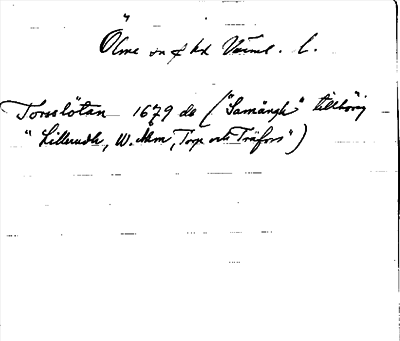 Ölme sn & hd Värml. l.
Torsslötan 1679 ds ("Samängh" tillhörig
"Lillerudh, W. Ahm, Torp och Träfors")